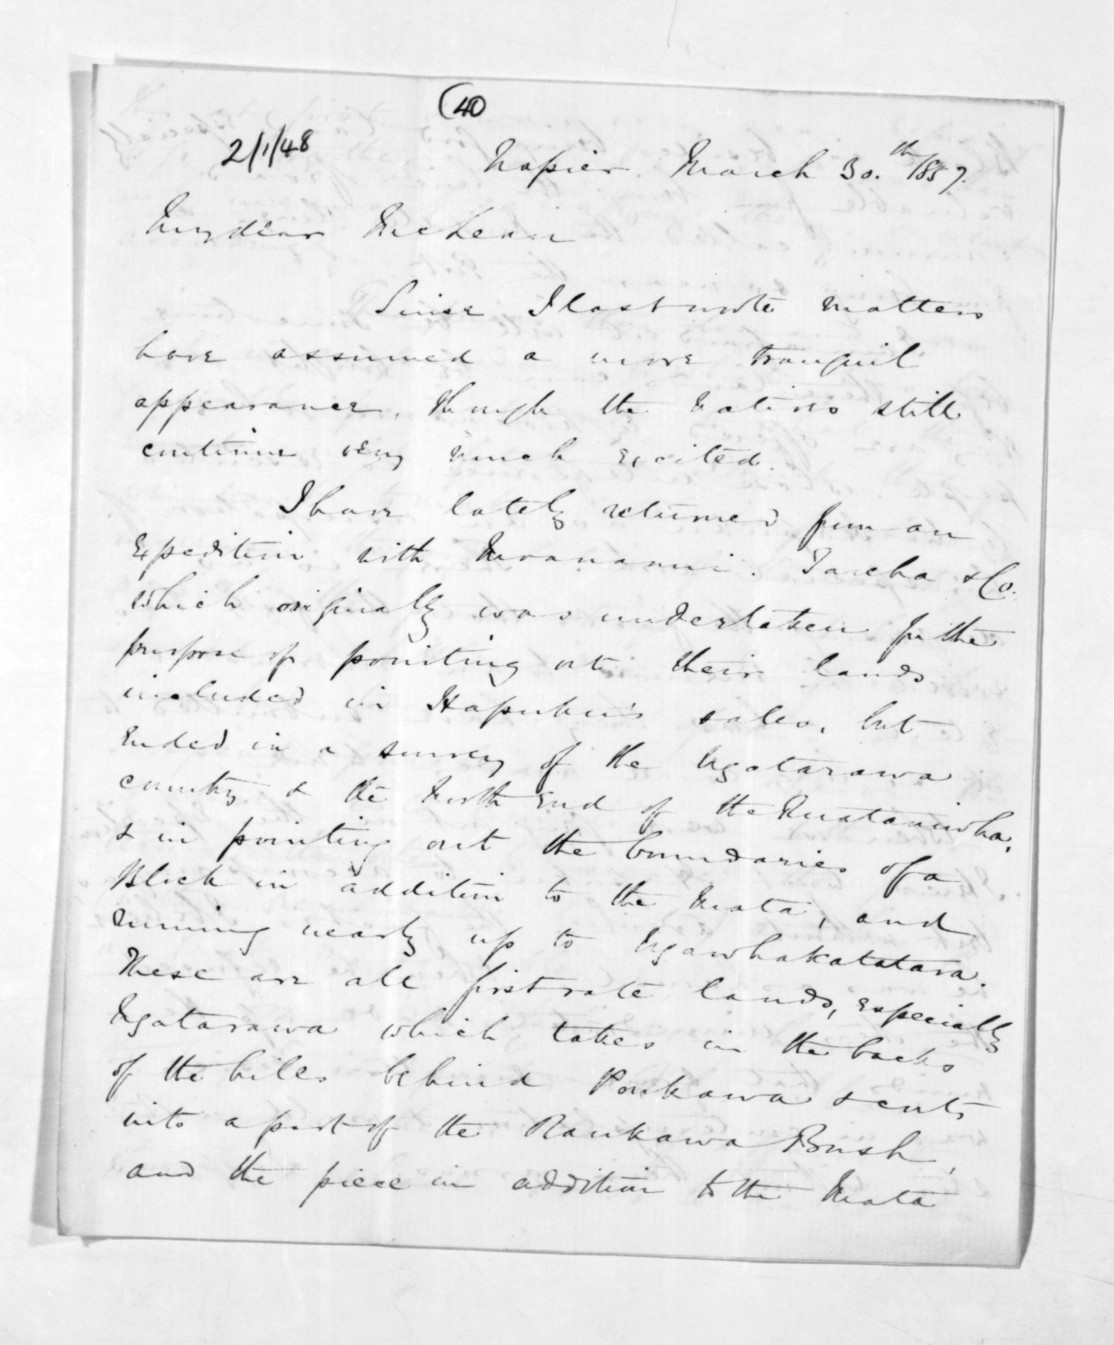 (40
2/1/48
Napier March 30.th 1857.
My dear McLean
Since I last wrote matters
have assumed a more tranquil
appearance, though the Natives still
continue very much excited.
I have lately returned from an
Expedition with Moananui. Tareha & Co.
which originally was undertaken for the
purpose of pointing out their lands
included in Hapuku's sales, but
ended in a survey of the Ngatarawa
country & the North End of the Ruataniwha,
& in pointing out the boundaries of a
Block in addition to the Mata, and
running nearly up to Ngawhakatatara.
These are all first rate lands, especially
Ngatarawa which takes in the backs
of the hills behind Poukawa & cuts
into a part of the Raukawa Bush,
and the piece in addition to the Mata